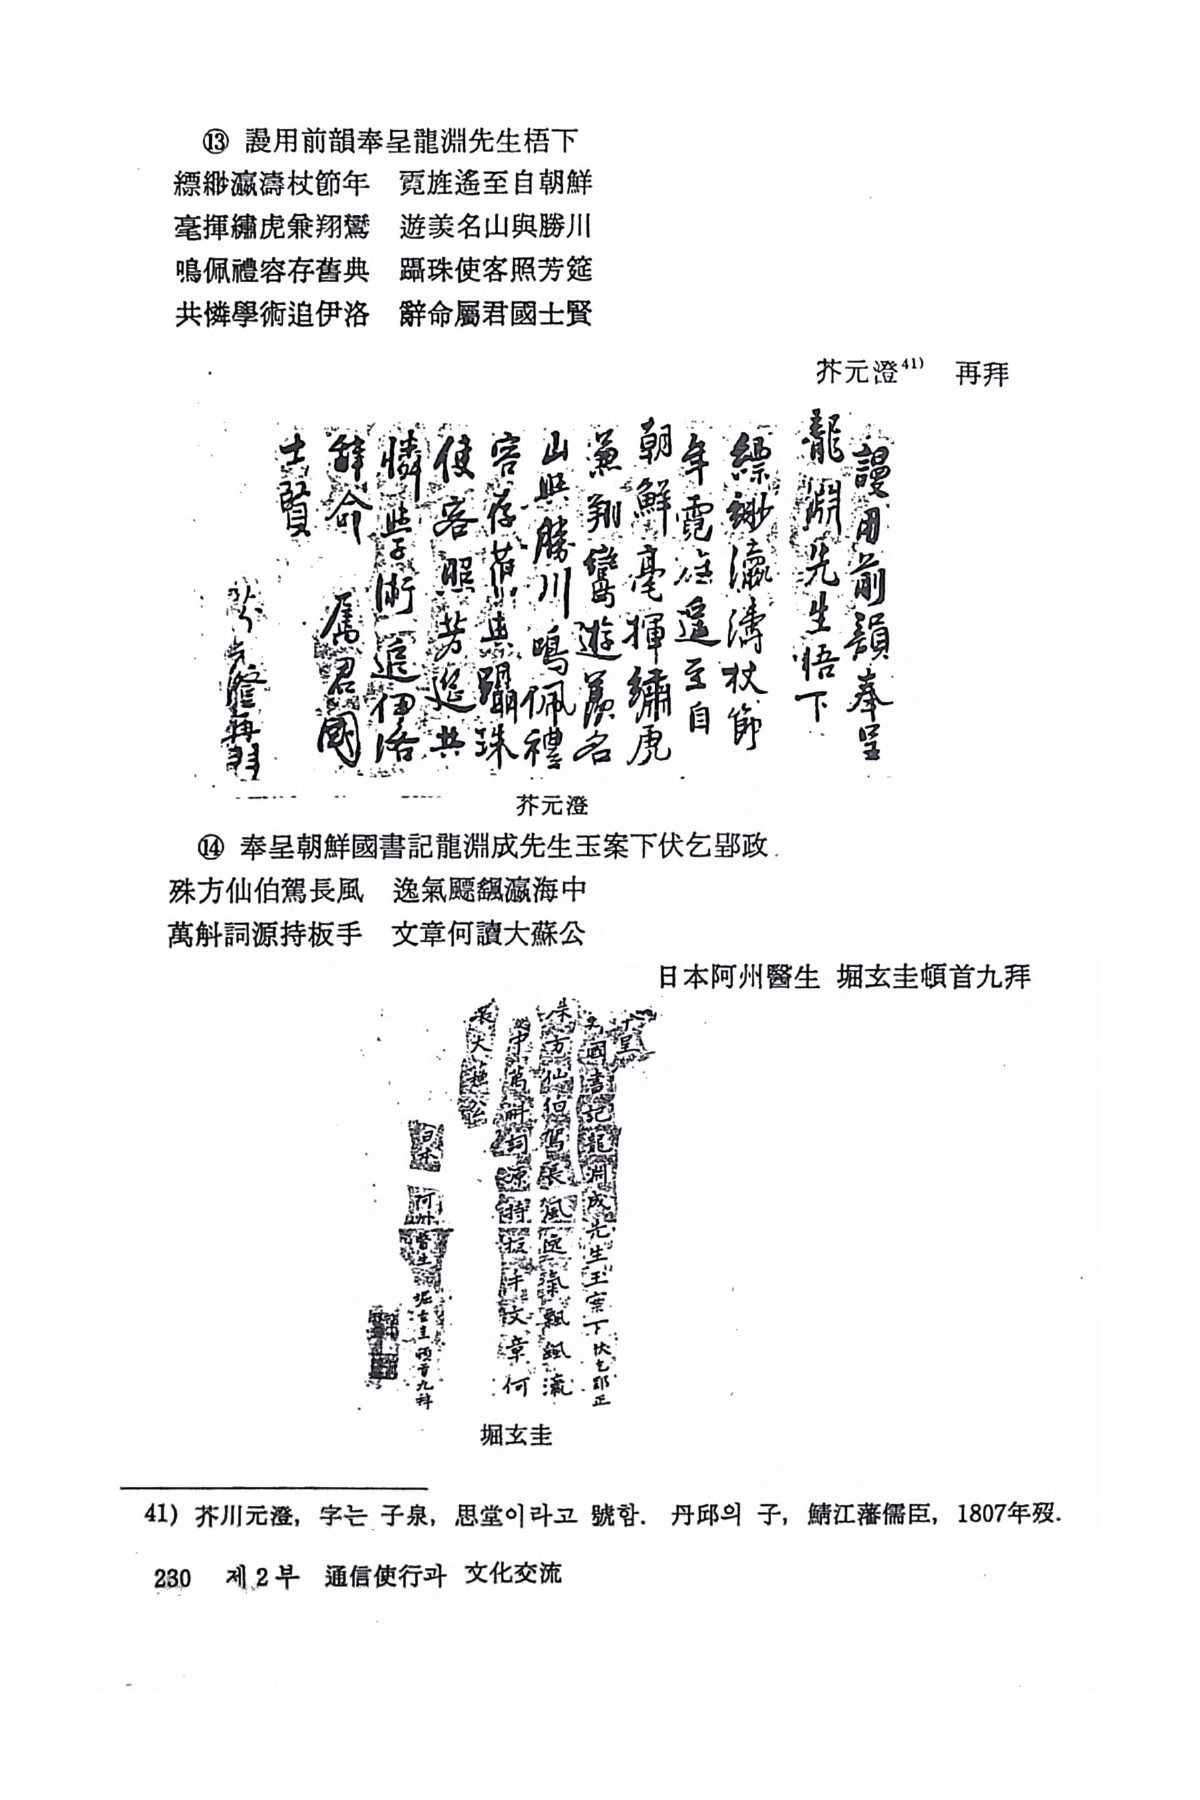 ⑬ 謾用前韻奉呈龍淵先生梧下
縹緲瀛濤杖節年 霓旌遙至自朝鮮
毫揮繡虎兼翔鸞 遊羨名山與勝川
鳴佩禮容存舊典 躡珠使客照芳筵
共憐學術追伊洛 辭命屬君國士賢
芥元澄41) 再拜
謾用前韻奉呈
龍淵先生梧下
縹緲瀛濤杖節
年霓旌遙至自
朝鮮毫揮繡虎
兼翔鸞遊羨名
山與勝川鳴佩禮
容存舊典躡珠
使客照芳筵共
憐學術追伊洛
辭命屬君國
士賢
芥元澄再拜
芥元澄
⑭ 奉呈朝鮮國書記龍淵成先生玉案下伏乞郢政
殊方仙伯駕長風 逸氣飃颻瀛海中
萬斛詞源持板手 文章何讓大蘇公
日本阿州醫生 堀玄圭頓首九拜
呈
國書記龍淵成先生玉案下伏乞郢正
朱方仙伯駕長風逸氣飄颻瀛
中萬斛詞源持板手文章何
大蘇公
日本 阿州醫生 堀玄圭頓首九拜
堀玄圭
41) 芥川元澄, 字는 子泉, 思堂이라고 號함. 丹邱의 子, 鯖江藩儒臣, 1807年歿.
230 제2부 通信使行과 文化交流